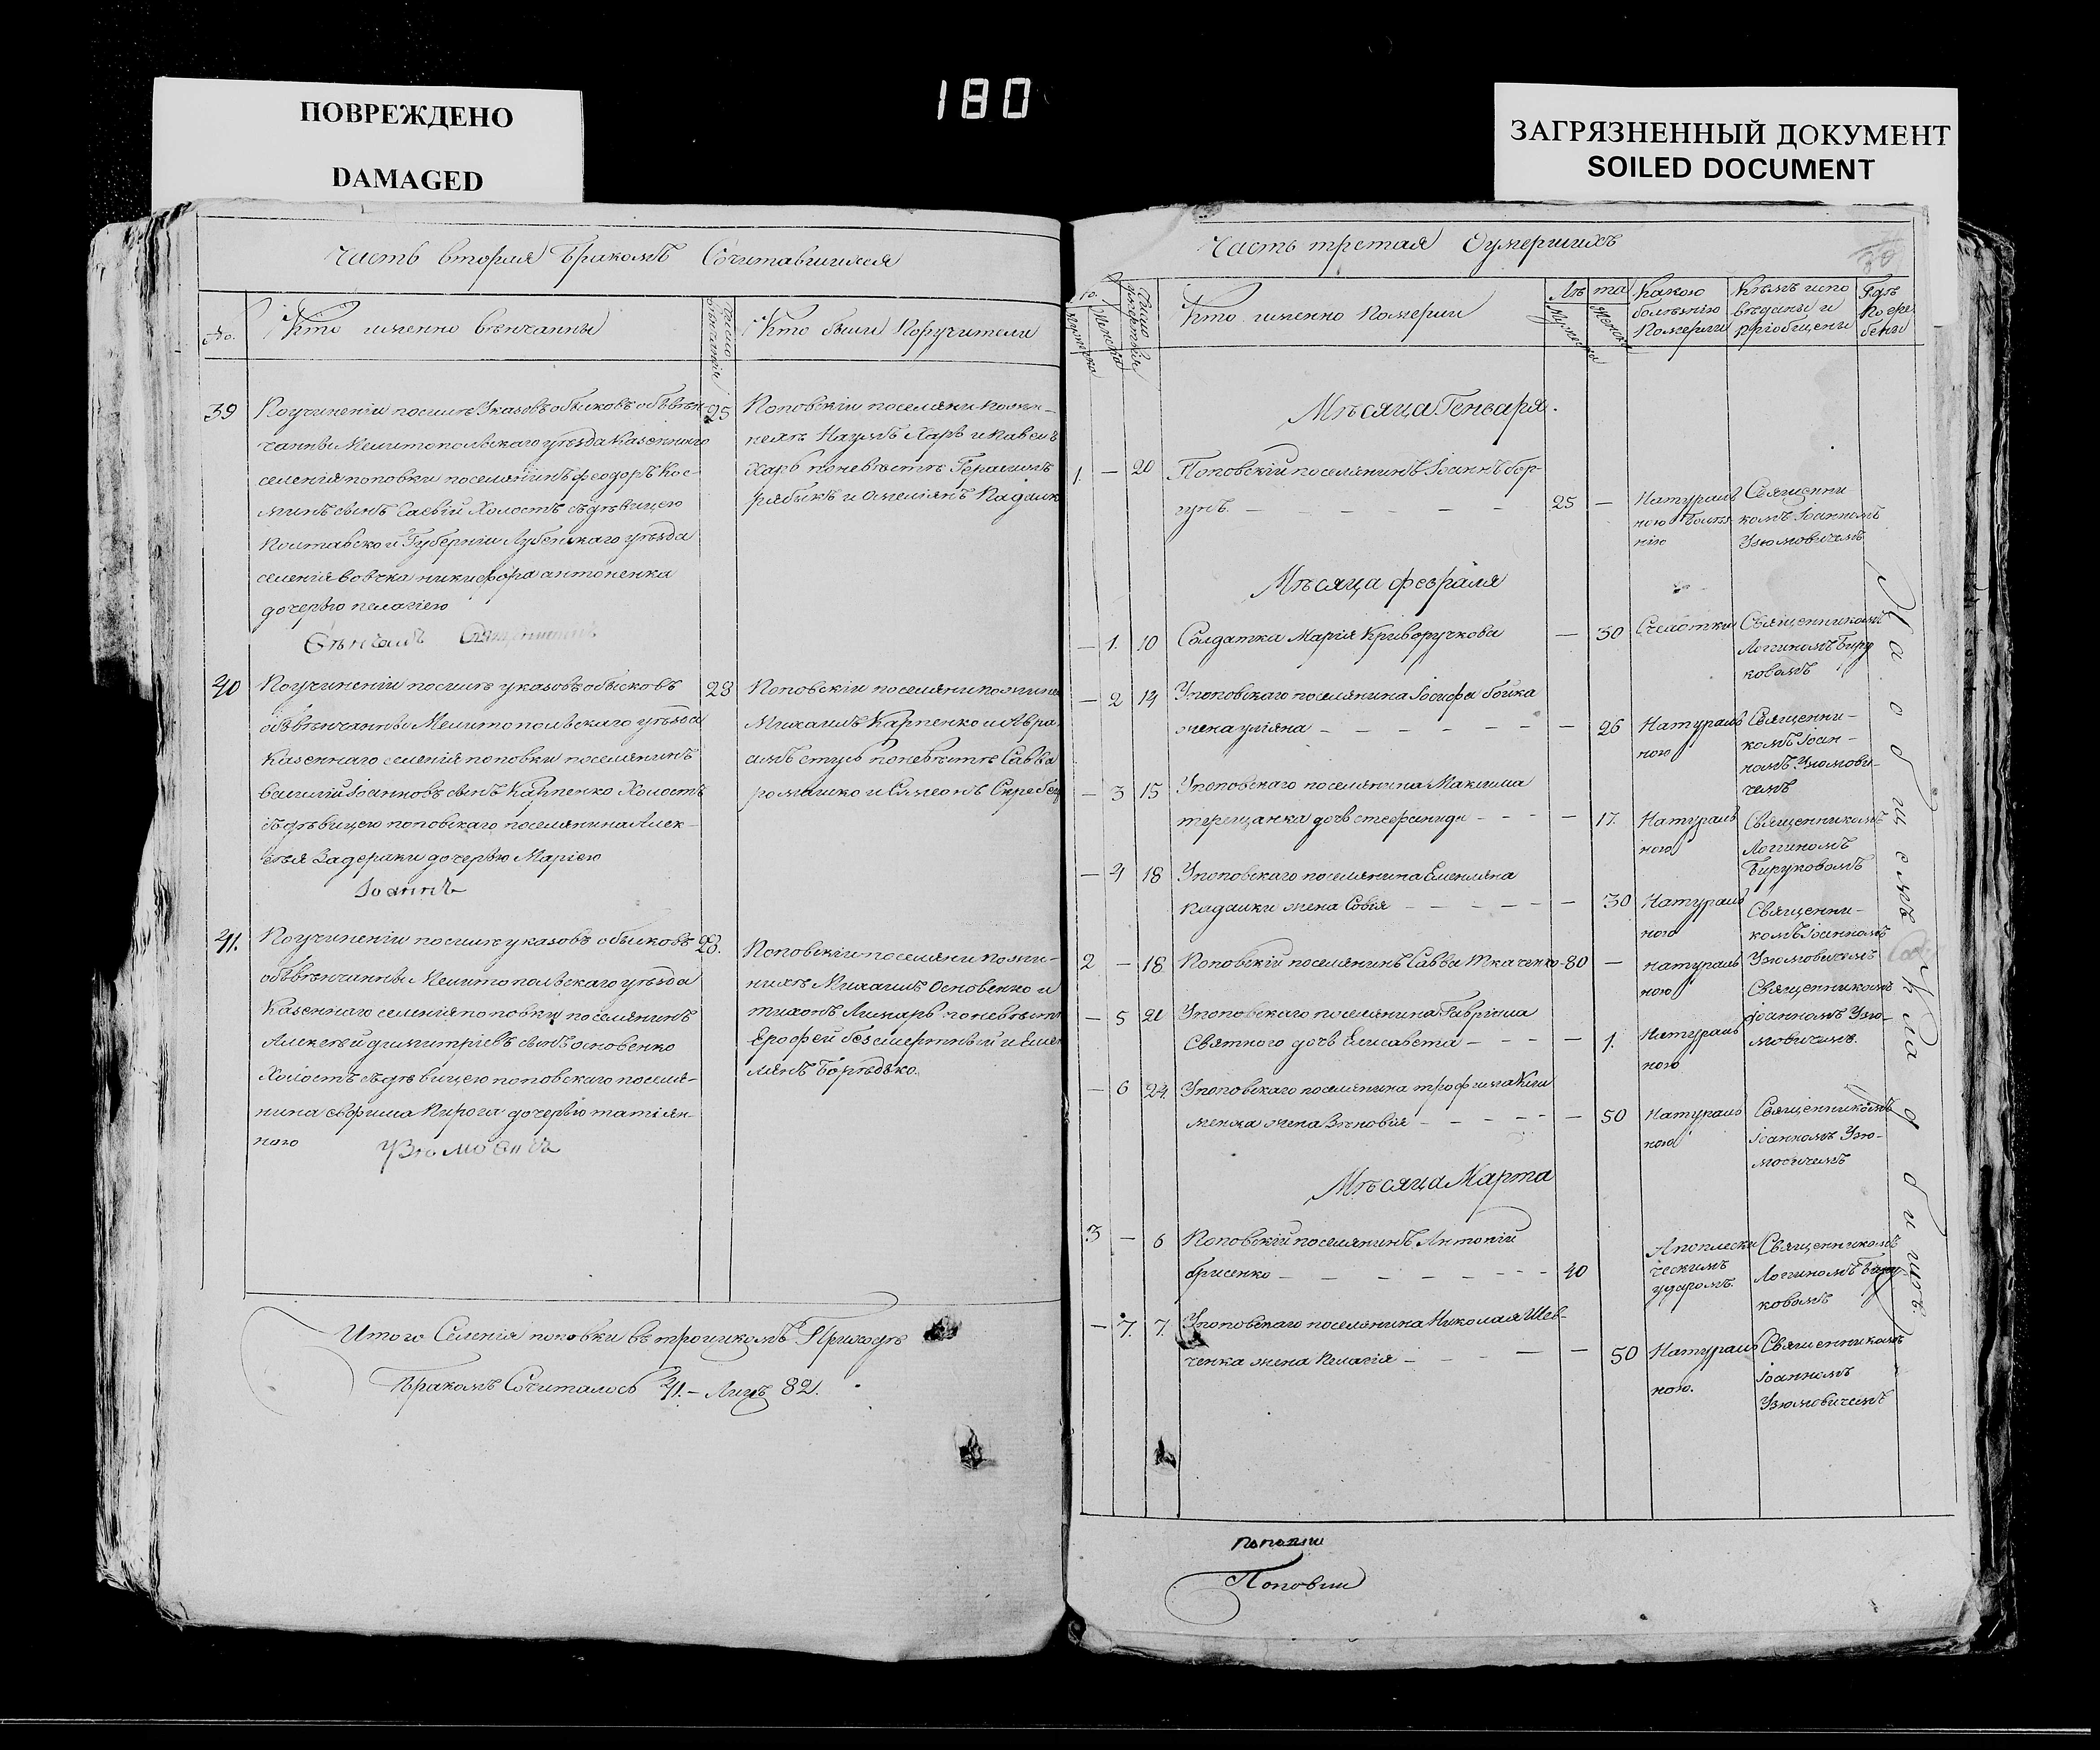 180
ПОВРЕЖДЕНО
DAMAGED
ЗАГРЯЗНЕННЫЙ ДОКУМЕНТ
SOILED DOCUMENT
Часть вторая Бракомъ Сочитавшихся
No.
Кто именно венчанны
Число венчания
Кто были Поручители
39
По учинении после Указовъ обысковъ обвѣн-
чанны Мелитопольскаго уѣзда Казеннаго
селения поповки поселянинъ феодоръ Кос-
минъ сынъ Холостъ съ дѣвицею
Полтавской Губерніи Лубенскаго уѣзда
селенія вовчка никифора антоненка
дочерью пелагіею
Вѣнчалъ Священникъ
25
Поповскіи поселяни
Наумъ Харь и Павелъ
Харь по невѣстѣ Герасимъ
рябыкъ и омелянъ Падалк
40
По учинении после указовъ обысковъ
обвѣнчанны Мелитопольскаго уѣзда
Казеннаго селенія поповки поселянинъ
василий Iоанновъ сынъ Карпенко Холостъ
съ дѣвицею поповскаго поселянина Алек-
сѣя Задераки дочерью Маріею
Iоаннъ
28
Поповскіи поселяни по
Михаилъ Карпенко и Авра
амъ стусь по невѣстѣ Савва
ромашко и Симеонъ
41.
По учинении после указовъ обысковъ
обвѣнчанны Мелитопольскаго уѣзда
Казеннаго селенія поповки поселянинъ
Алексѣй димитріевъ сынъ основенко
Холостъ съ дѣвицею поповскаго поселя-
нина ефима Пирога дочерью татіян-
ною
Узюмовичъ
28.
Поповскіи поселяни по жени-
нихѣ Михаилъ Основенко и
тихонъ Лимарь по невѣст
Ерофей безсмертный и Емел
лянъ
Итого Селенія поповки въ троицкомъ Приходѣ
Бракомъ Сочиталось 41.– Лицъ 82.
Часть третая О умершихъ
80
No.
Мужеска
Женска
Кто именно Померли
Лѣ та
Мужеска
Женска
Какою болѣзнію Померли
Кѣмъ испо вѣданы и пріобщены
Гдѣ Погре бены
Мѣсяца Генваря.
1. — 20 Поповскій поселянинъ Iоаннъ бор-
гунъ. — 25 — Натураль ною болѣз нію Священни комъ Iоанномъ Узюмовичемъ
Мѣсяца февраля
— 1. 10 Солдатка Марія Криворучкова — 30 Священникомъ Логгиномъ Биру ковомъ
— 2 14 Упоповскаго поселянина Iосифа бойка
жена уліяна — 26 Натураль ною Священни- комъ Iоан- номъ Узюмови- чемъ
— 3 15 Упоповскаго поселянина Максима
терещанка дочь стефанида — 17. Натураль ною Священникомъ Логгиномъ Бируковомъ
— 4 18 Упоповскаго поселянина Емельяна
падалки жена Софія — 30 Натураль ною Священни- комъ Iоанномъ Узюмовичемъ
2 — 18 Поповскій поселянинъ Савва Ткаченко 80 — натураль ною Священникомъ Iоанномъ Узю- мовичемъ.
— 5 21 Упоповскаго поселянина Гавріила
Святного дочь Елисавета — 1. Натураль ною
— 6 24 Упоповскаго поселянина трофима Кли
менка жена Зѣновія — 50 Натураль ною Священникомъ Iоанномъ Узю- мовичемъ
Мѣсяца Марта
3 — 6 Поповскій поселянинъ Антоній
брисенко — 40 Апоплекси ческимъ ударомъ. Священникомъ Логгиномъ Биру- ковомъ
— 7. 7. Упоповскаго поселянина Николая Шев-
ченка жена Пелагія — 50 Натураль ною. Священникомъ Iоанномъ Узюмовичемъ
На общемъ кладбищѣ.
Поповки